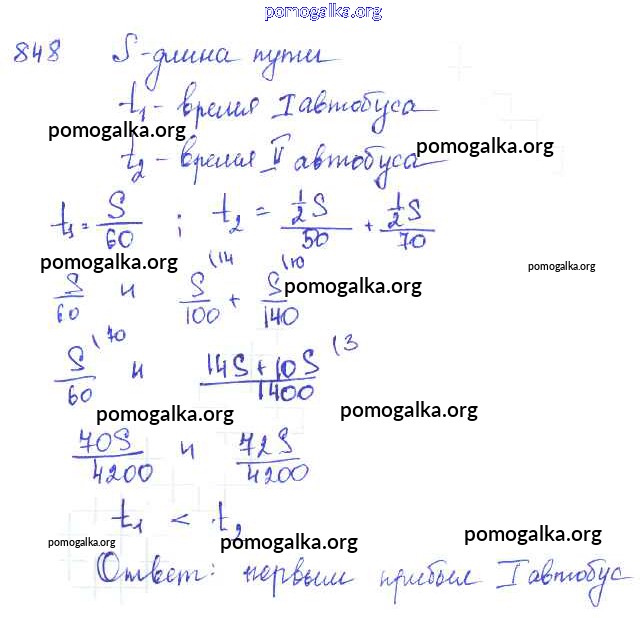 pomogalka.org
848 S - длина пути
t₁ - время I автобуса
pomogalka.org
pomogalka.org
t₂ - время II автобуса
t₁ = S/60 ; t₂ = ½S/50 + ½S/70
pomogalka.org
pomogalka.org
S/60 и S/100 (14 + S/140 (10
pomogalka.org
S/60 (70 и 14S + 10S/1400 (3
pomogalka.org
pomogalka.org
70S/4200 и 72S/4200
t₁ < t₂
pomogalka.org
pomogalka.org
pomogalka.org
Ответ: первым прибыл I автобус